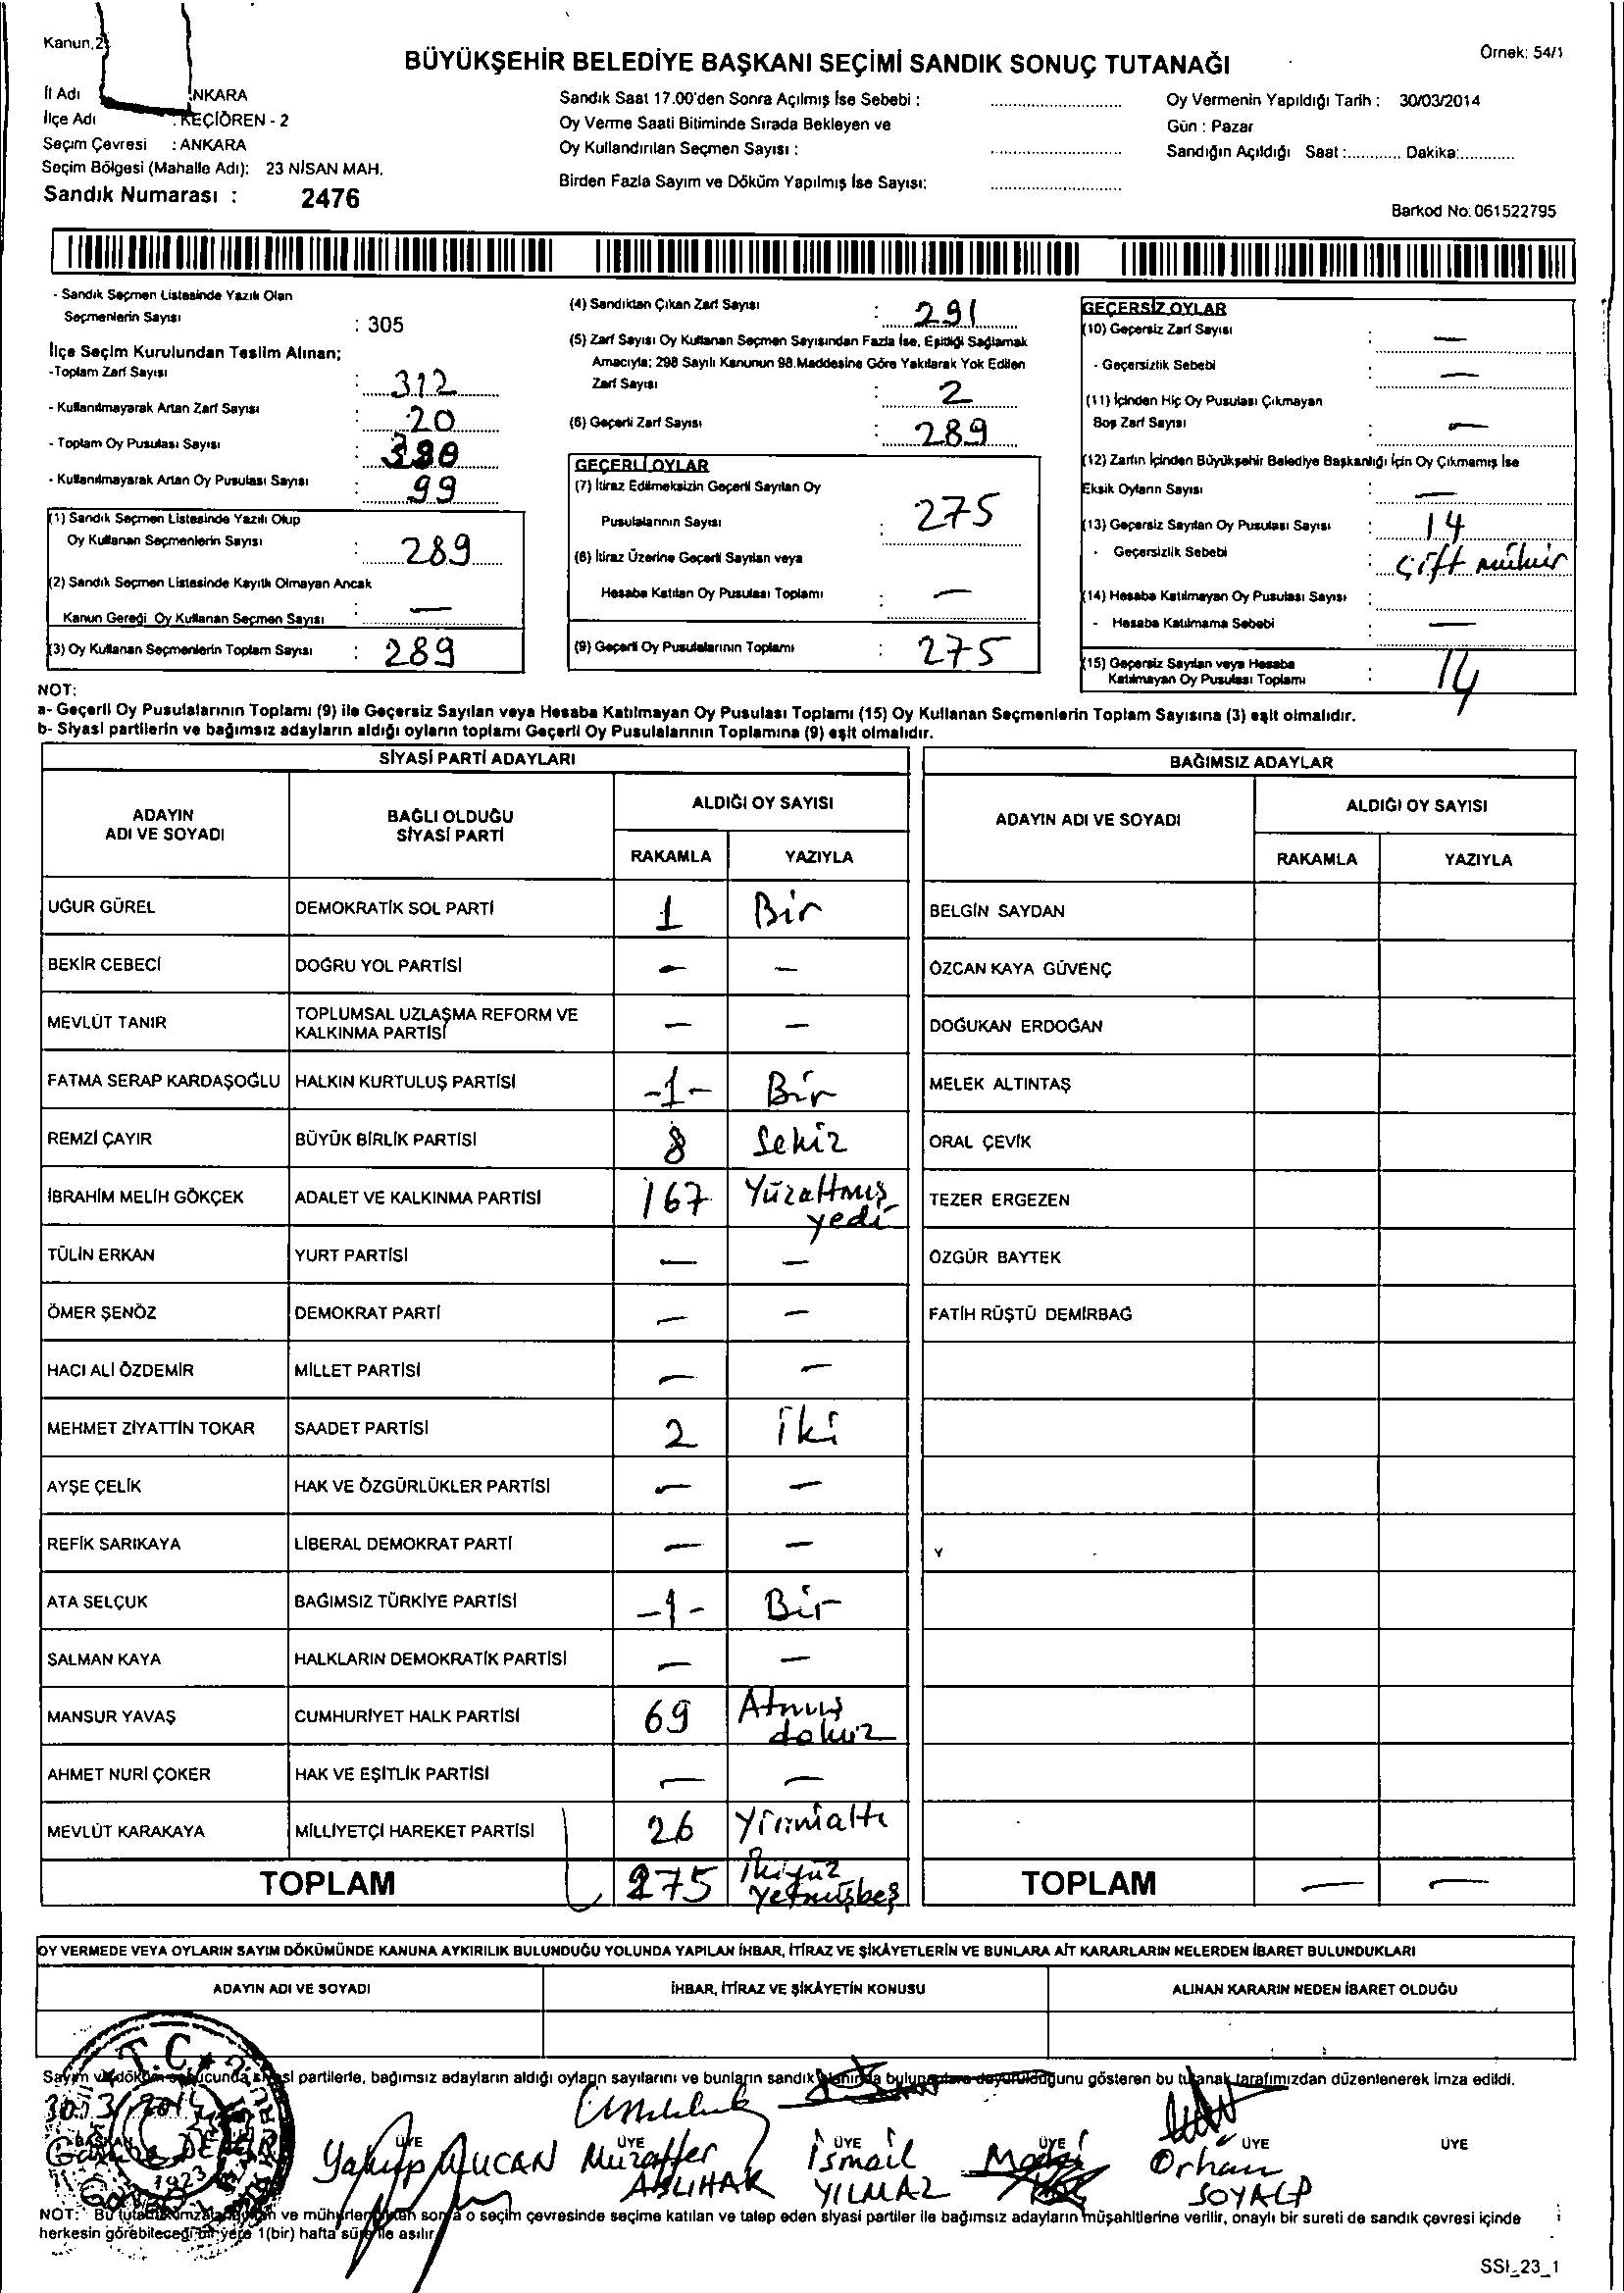 Kanun,2
BÜYÜKŞEHİR BELEDİYE BAŞKANI SEÇİMİ SANDIK SONUÇ TUTANAĞI
Örnek: 54/1
İl Adı NKARA
İlçe Adı : KEÇİÖREN - 2
Seçim Çevresi : ANKARA
Seçim Bölgesi (Mahalle Adı): 23 NİSAN MAH.
Sandık Numarası : 2476
Sandık Saat 17.00'den Sonra Açılmış İse Sebebi :
Oy Verme Saati Bitiminde Sırada Bekleyen ve
Oy Kullandırılan Seçmen Sayısı :
Birden Fazla Sayım ve Döküm Yapılmış İse Sayısı:
Oy Vermenin Yapıldığı Tarih : 30/03/2014
Gün : Pazar
Sandığın Açıldığı Saat :............ Dakika:............
Barkod No: 061522795
- Sandık Seçmen Listesinde Yazılı Olan
Seçmenlerin Sayısı : 305
İlçe Seçim Kurulundan Teslim Alınan;
-Toplam Zarf Sayısı : 312
- Kullanılmayarak Artan Zarf Sayısı : 20
- Toplam Oy Pusulası Sayısı :
- Kullanılmayarak Artan Oy Pusulası Sayısı : 99
(1) Sandık Seçmen Listesinde Yazılı Olup
Oy Kullanan Seçmenlerin Sayısı : 289
(2) Sandık Seçmen Listesinde Kayıtlı Olmayan Ancak
Kanun Gereği Oy Kullanan Seçmen Sayısı : —
(3) Oy Kullanan Seçmenlerin Toplam Sayısı : 289
(4) Sandıktan Çıkan Zarf Sayısı : 291
(5) Zarf Sayısı Oy Kullanan Seçmen Sayısından Fazla İse, Eşitliği Sağlamak
Amacıyla; 298 Sayılı Kanunun 98.Maddesine Göre Yakılarak Yok Edilen
Zarf Sayısı : 2
(6) Geçerli Zarf Sayısı : 289
GEÇERLİ OYLAR
(7) İtiraz Edilmeksizin Geçerli Sayılan Oy
Pusulalarının Sayısı : 275
(8) İtiraz Üzerine Geçerli Sayılan veya
Hesaba Katılan Oy Pusulası Toplamı : —
(9) Geçerli Oy Pusulalarının Toplamı : 275
GEÇERSİZ OYLAR
(10) Geçersiz Zarf Sayısı : —
- Geçersizlik Sebebi : —
(11) İçinden Hiç Oy Pusulası Çıkmayan
Boş Zarf Sayısı : —
(12) Zarfın İçinden Büyükşehir Belediye Başkanlığı İçin Oy Çıkmamış İse
Eksik Oyların Sayısı : —
(13) Geçersiz Sayılan Oy Pusulası Sayısı : 14
- Geçersizlik Sebebi : Çift mühür
(14) Hesaba Katılmayan Oy Pusulası Sayısı :
- Hesaba Katılmama Sebebi : —
(15) Geçersiz Sayılan veya Hesaba
Katılmayan Oy Pusulası Toplamı : 14
NOT:
a- Geçerli Oy Pusulalarının Toplamı (9) ile Geçersiz Sayılan veya Hesaba Katılmayan Oy Pusulası Toplamı (15) Oy Kullanan Seçmenlerin Toplam Sayısına (3) eşit olmalıdır.
b- Siyasi partilerin ve bağımsız adayların aldığı oyların toplamı Geçerli Oy Pusulalarının Toplamına (9) eşit olmalıdır.
SİYASİ PARTİ ADAYLARI
ADAYIN ADI VE SOYADI BAĞLI OLDUĞU SİYASİ PARTİ ALDIĞI OY SAYISI
RAKAMLA YAZIYLA
UĞUR GÜREL DEMOKRATİK SOL PARTİ 1 Bir
BEKİR CEBECİ DOĞRU YOL PARTİSİ — —
MEVLÜT TANIR TOPLUMSAL UZLAŞMA REFORM VE KALKINMA PARTİSİ — —
FATMA SERAP KARDAŞOĞLU HALKIN KURTULUŞ PARTİSİ -1- Bir
REMZİ ÇAYIR BÜYÜK BİRLİK PARTİSİ 8 Sekiz
İBRAHİM MELİH GÖKÇEK ADALET VE KALKINMA PARTİSİ 167 Yüzaltmış yedi
TÜLİN ERKAN YURT PARTİSİ — —
ÖMER ŞENÖZ DEMOKRAT PARTİ — —
HACI ALİ ÖZDEMİR MİLLET PARTİSİ — —
MEHMET ZİYATTİN TOKAR SAADET PARTİSİ 2 iki
AYŞE ÇELİK HAK VE ÖZGÜRLÜKLER PARTİSİ — —
REFİK SARIKAYA LİBERAL DEMOKRAT PARTİ — —
ATA SELÇUK BAĞIMSIZ TÜRKİYE PARTİSİ -1- Bir
SALMAN KAYA HALKLARIN DEMOKRATİK PARTİSİ — —
MANSUR YAVAŞ CUMHURİYET HALK PARTİSİ 69 Atmış dokuz
AHMET NURİ ÇOKER HAK VE EŞİTLİK PARTİSİ — —
MEVLÜT KARAKAYA MİLLİYETÇİ HAREKET PARTİSİ 26 Yirmialtı
TOPLAM 275 İkiyüz Yetmişbeş
BAĞIMSIZ ADAYLAR
ADAYIN ADI VE SOYADI ALDIĞI OY SAYISI
RAKAMLA YAZIYLA
BELGİN SAYDAN
ÖZCAN KAYA GÜVENÇ
DOĞUKAN ERDOĞAN
MELEK ALTINTAŞ
ORAL ÇEVİK
TEZER ERGEZEN
ÖZGÜR BAYTEK
FATİH RÜŞTÜ DEMİRBAĞ
TOPLAM — —
OY VERMEDE VEYA OYLARIN SAYIM DÖKÜMÜNDE KANUNA AYKIRILIK BULUNDUĞU YOLUNDA YAPILAN İHBAR, İTİRAZ VE ŞİKÂYETLERİN VE BUNLARA AİT KARARLARIN NELERDEN İBARET BULUNDUKLARI
ADAYIN ADI VE SOYADI İHBAR, İTİRAZ VE ŞİKÂYETİN KONUSU ALINAN KARARIN NEDEN İBARET OLDUĞU
T.C.
partilerle, bağımsız adayların aldığı oyların sayılarını ve bunların sandık gösteren bu tutanak tarafımızdan düzenlenerek imza edildi.
BAŞKAN ÜYE ÜYE ÜYE ÜYE ÜYE ÜYE
Yakup Muzaffer ASLIHAK İsmail YILMAZ Orhan SOYALP
1923
NOT: Bu ve o seçim çevresinde seçime katılan ve talep eden siyasi partiler ile bağımsız adayların müşahitlerine verilir, onaylı bir sureti de sandık çevresi içinde
herkesin görebileceği bir yere 1(bir) hafta süre ile asılır.
SSI_23_1